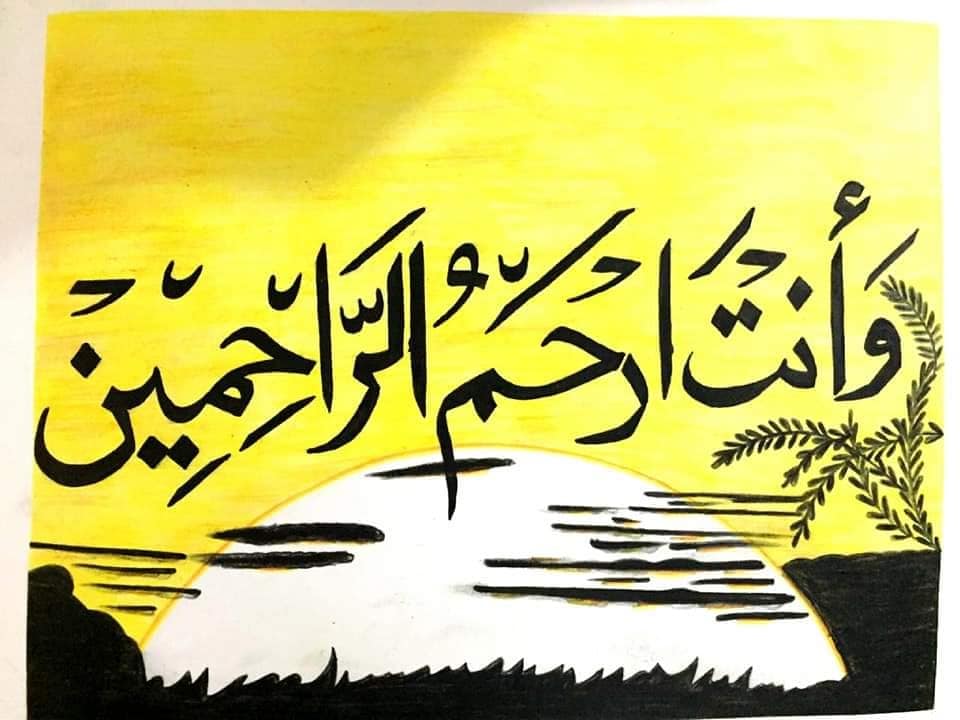 وَأَنْتَ ارْحَمُ الرَّاحِمِيْن